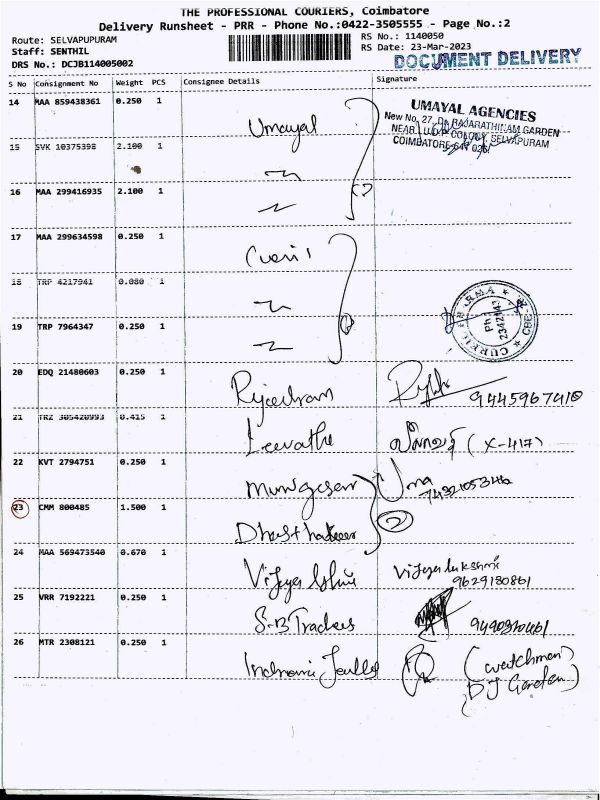 THE PROFESSIONAL COURIERS, Coimbatore
Delivery Runsheet - PRR - Phone No.:0422-3505555 - Page No.:2
Route: SELVAPUPURAM
Staff: SENTHIL
DRS No.: DCJB114005002
RS No.: 1140050
RS Date: 23-Mar-2023
DOCUMENT DELIVERY
S No Consignment No Weight PCS Consignee Details Signature
14 MAA 859438361 0.250 1 Umayal
UMAYAL AGENCIES
New No. 27, RAJARATHINAM GARDEN
NEAR COLONY, SELVAPURAM
COIMBATORE-641 026
15 SVK 10375398 2.100 1
16 MAA 299416935 2.100 1
17 MAA 299634598 0.250 1
18 TRP 4217941 0.080 1
19 TRP 7964347 0.250 1
20 EDQ 21480603 0.250 1
21 TRZ 305420993 0.415 1 (X-417)
22 KVT 2794751 0.250 1 Murugesan Uma
23 CMM 800485 1.500 1 2
24 MAA 569473540 0.670 1 Vijayalakshmi
9629180861
25 VRR 7192221 0.250 1 S.B Traders
26 MTR 2308121 0.250 1 (watchman)
DJ Garden)